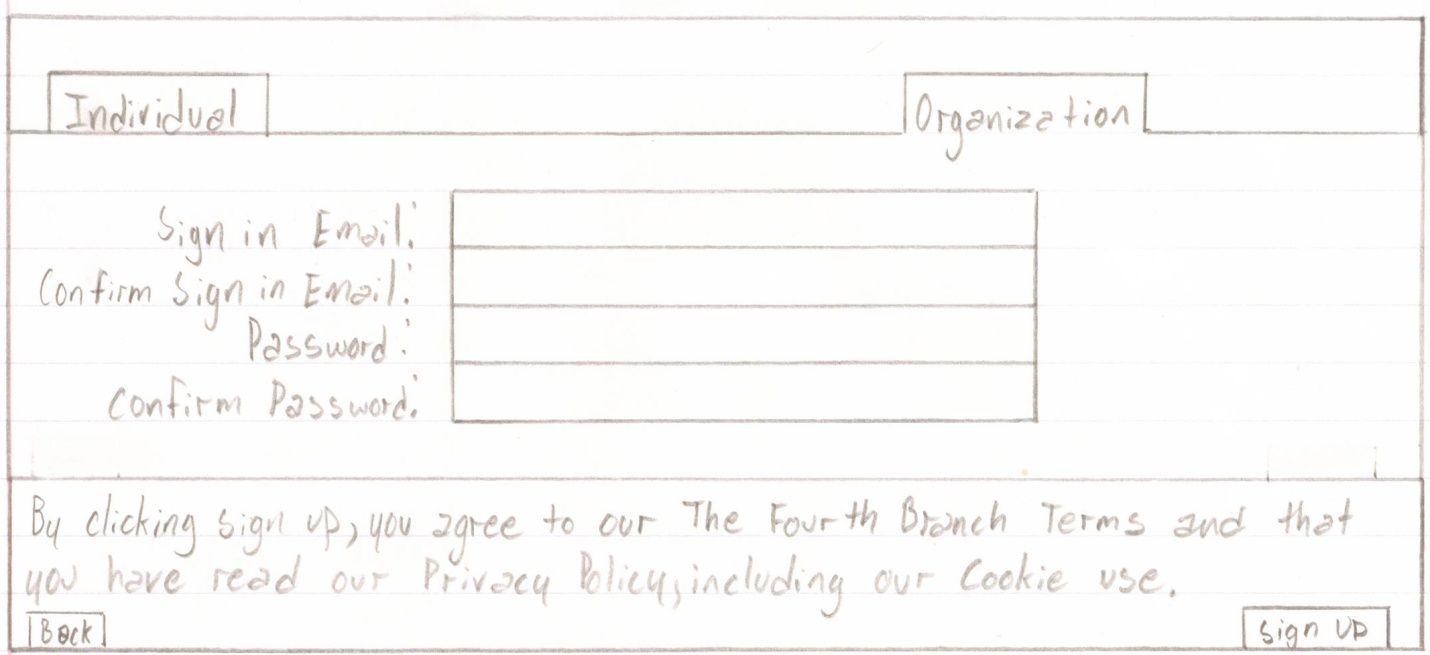 Individual
Organization
Sign in Email:
Confirm Sign in Email:
Password:
Confirm Password:
By clicking sign up, you agree to our The Fourth Branch Terms and that
you have read our Privacy Policy, including our Cookie use.
Back
Sign Up